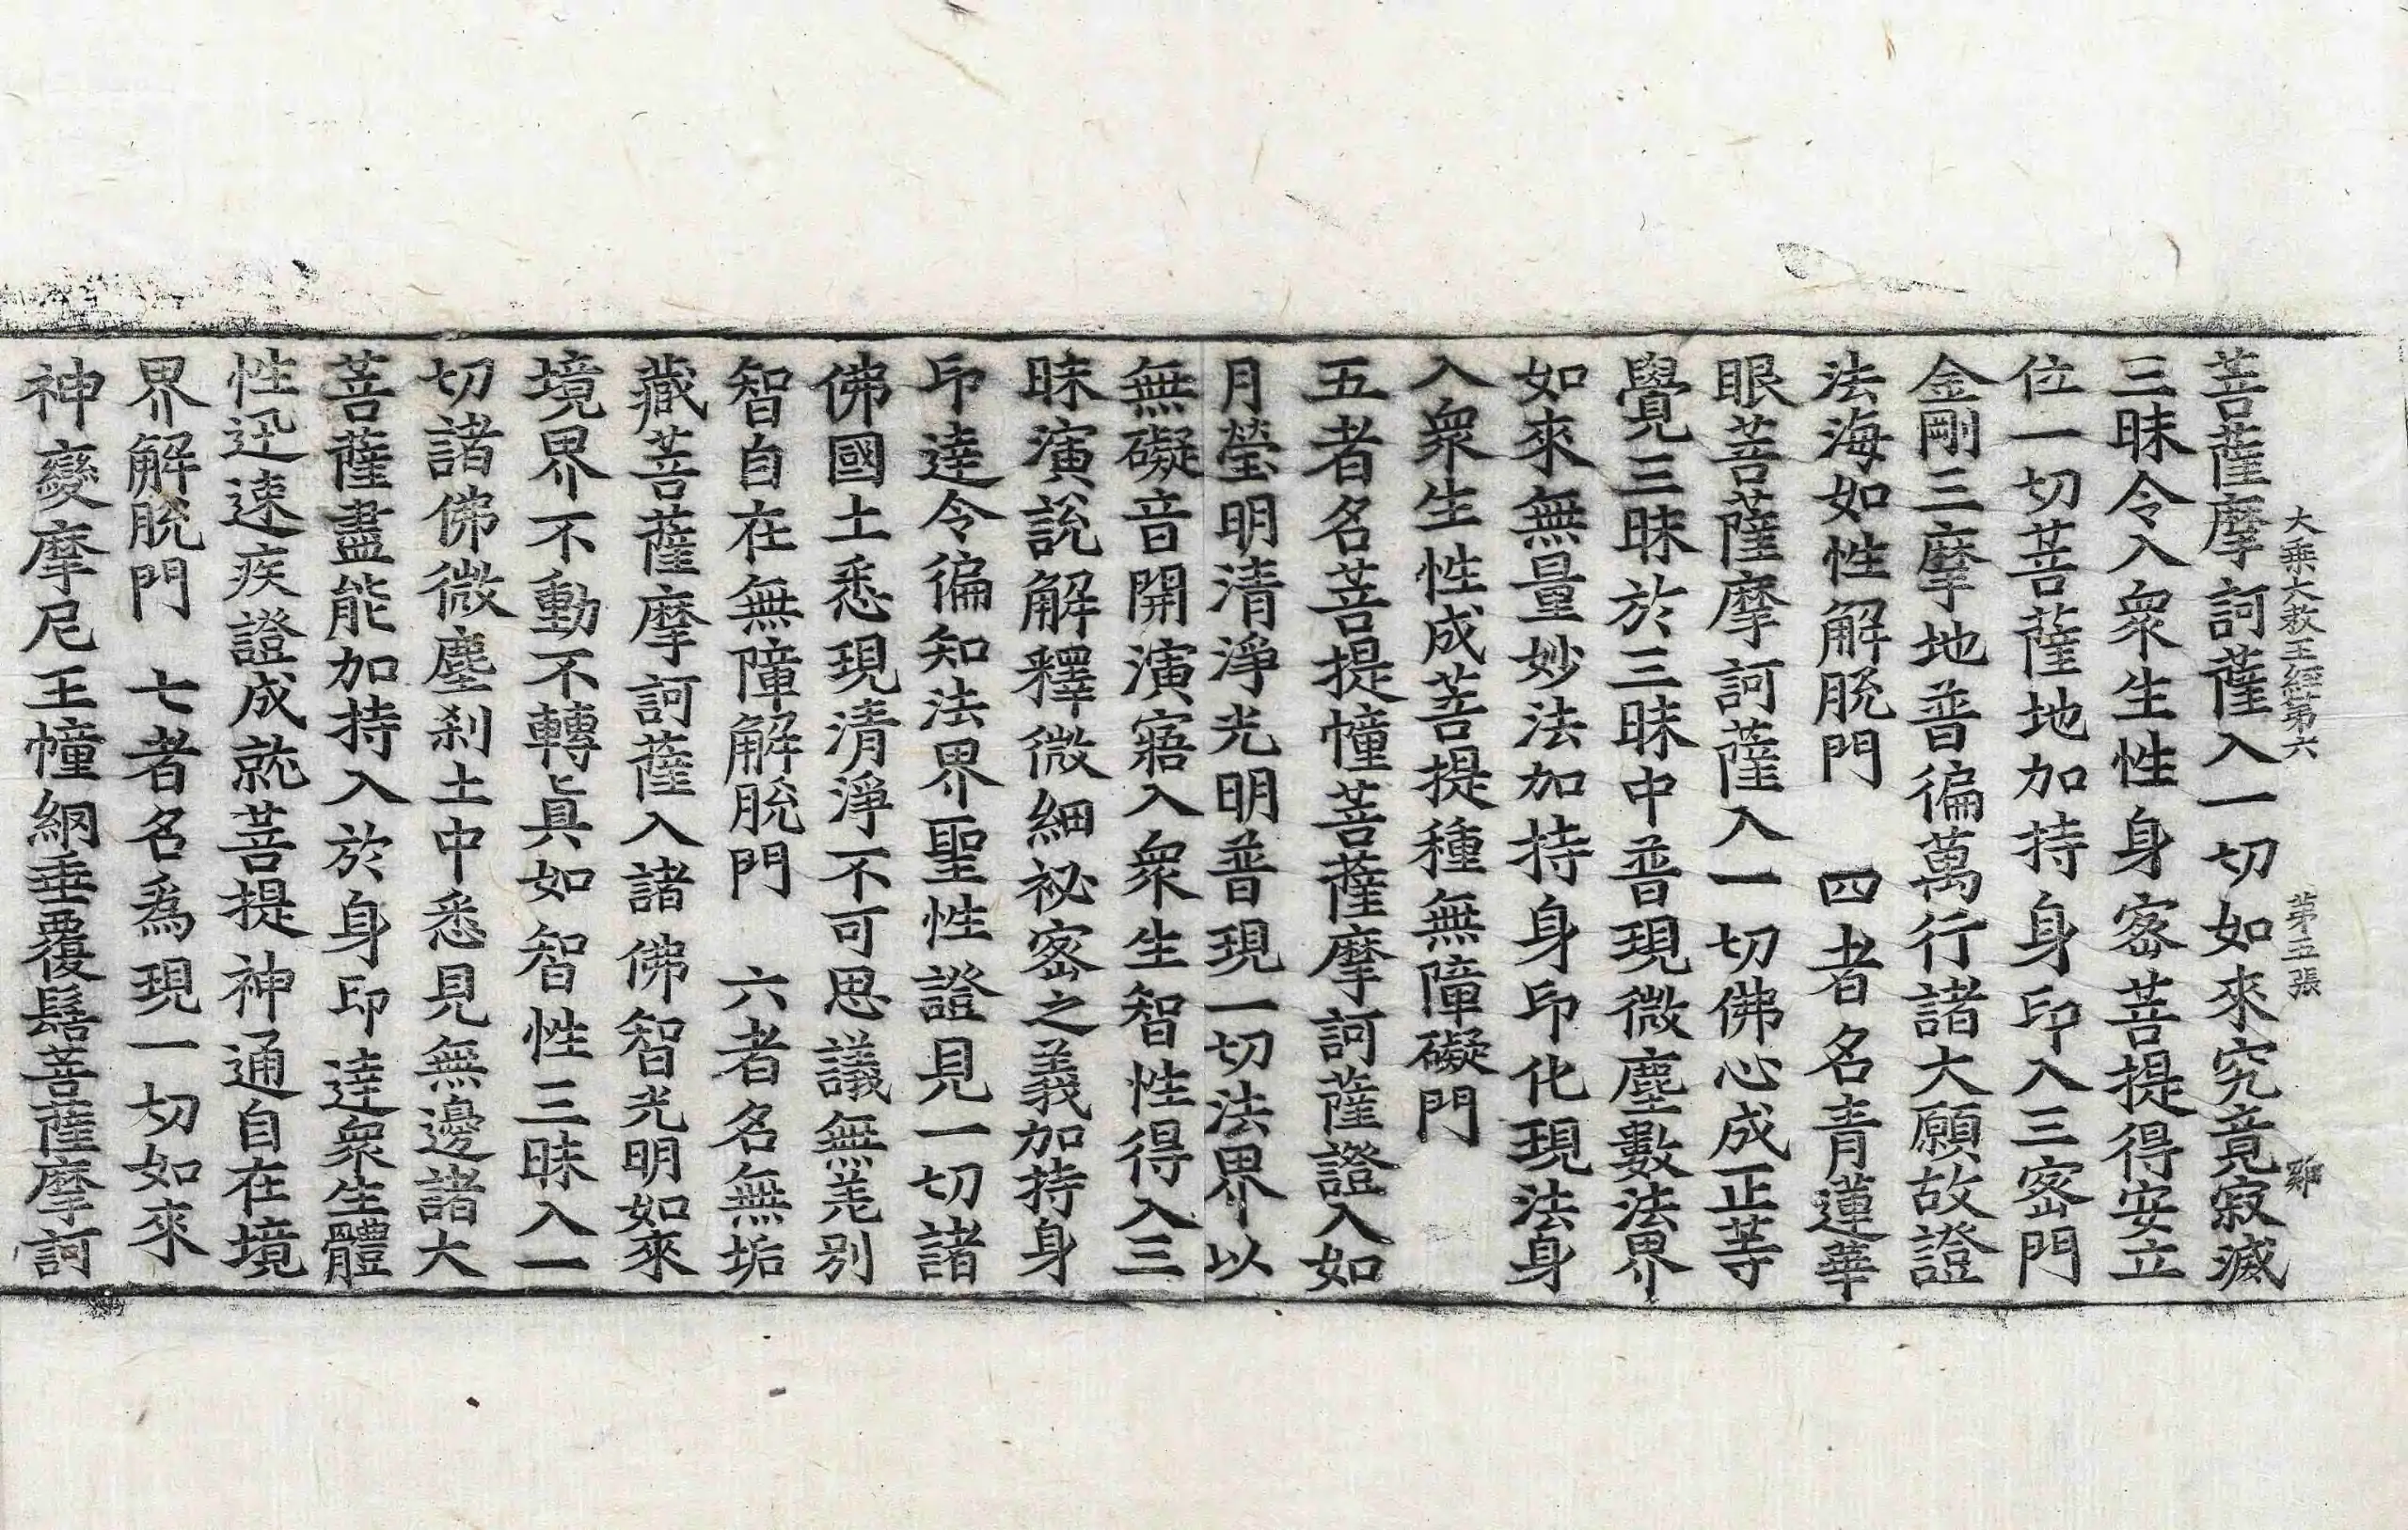 大乘大教王經第六　第五張　鄭
菩薩摩訶薩入一切如來究竟寂滅
三昧令入衆生性身密菩提得安立
位一切菩薩地加持身印入三密門
金剛三摩地普徧萬行諸大願故證
法海如性解脫門　四者名青蓮華
眼菩薩摩訶薩入一切佛心成正等
覺三昧於三昧中普現微塵數法界
如來無量妙法加持身印化現法身
入衆生性成菩提種無障礙門
五者名菩提幢菩薩摩訶薩證入如
月瑩明清淨光明普現一切法界以
無礙音開演寤入衆生智性得入三
昧演說解釋微細祕密之義加持身
印達令徧知法界聖性證見一切諸
佛國土悉現清淨不可思議無差別
智自在無障解脫門　六者名無垢
藏菩薩摩訶薩入諸佛智光明如來
境界不動不轉眞如智性三昧入一
切諸佛微塵刹土中悉見無邊諸大
菩薩盡能加持入於身印達衆生體
性迅速疾證成就菩提神通自在境
界解脫門　七者名爲現一切如來
神變摩尼王幢網垂覆髻菩薩摩訶